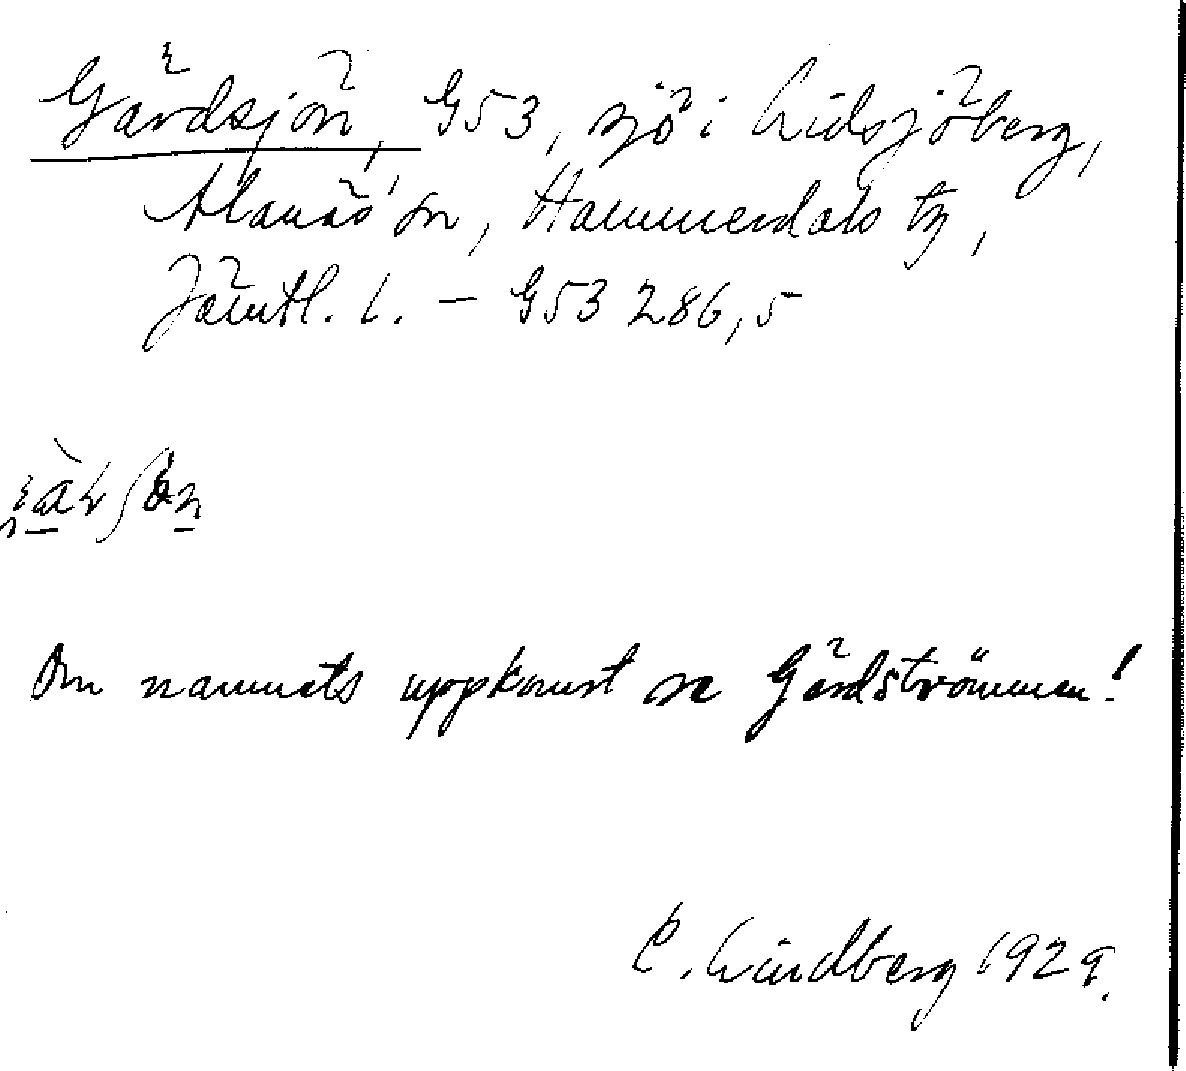 Gårdsjön, G53, sjö i Lidsjöberg,
Alanäs sn, Hammerdals tg,
Jämtl. l. – G53 286,5
Om namnets uppkomst se Gårdströmmen!
C. Lindberg 1929.